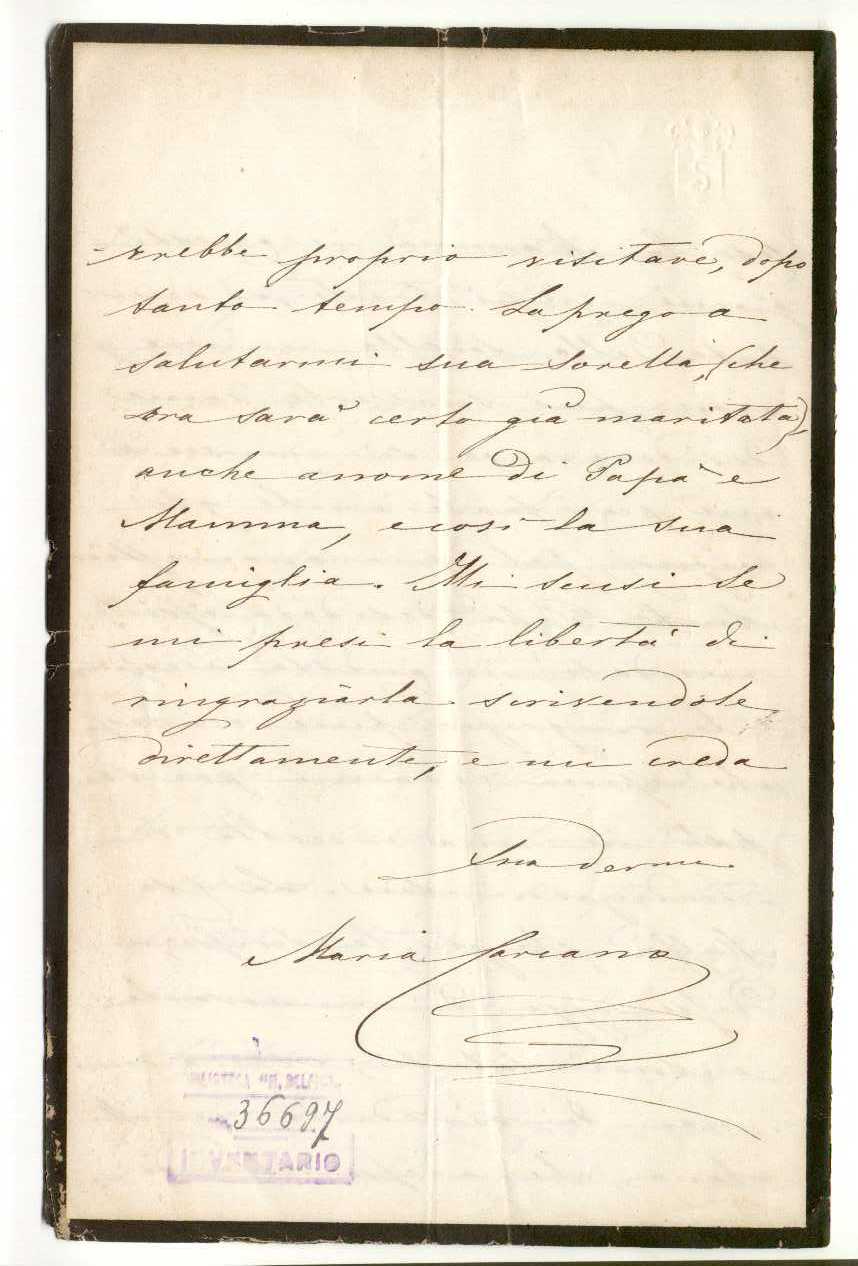 S
-vrebbe proprio visitare, dopo
tanto tempo. La prego a
salutarmi sua sorella, (che
ora sarà certo già maritata),
anche a nome di Papà e
Mamma, e così la sua
famiglia. Mi scusi se
mi presi la libertà di
ringraziarla scrivendole
direttamente, e mi creda
Sua devma
Maria
36697
INVENTARIO